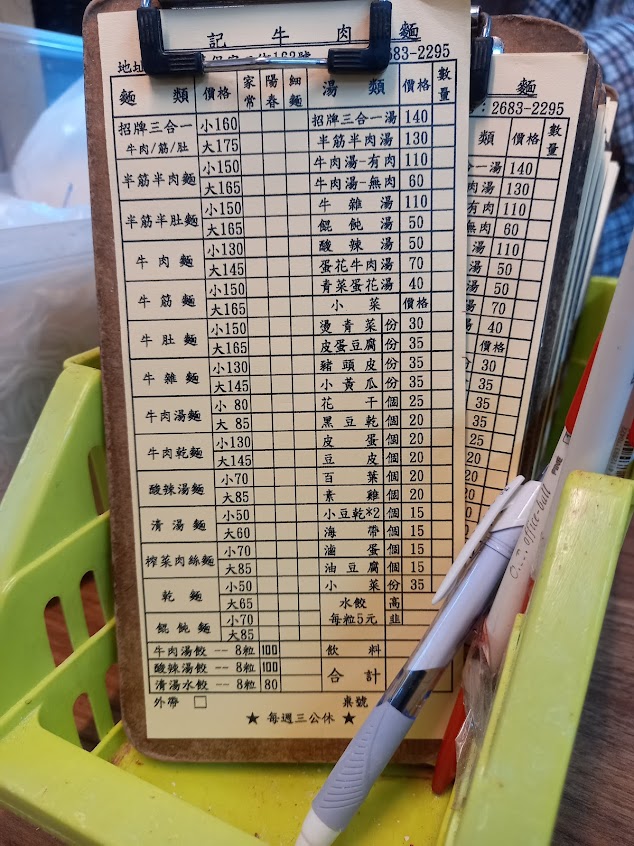 記 牛 肉 麵
地址 162號 683-2295
麵 類 價格 家常 陽春 細麵 湯 類 價格 數量
招牌三合一 牛肉/筋/肚 小160 大175
半筋半肉麵 小150 大165
半筋半肚麵 小150 大165
牛肉麵 小130 大145
牛筋麵 小150 大165
牛肚麵 小150 大165
牛雜麵 小130 大145
牛肉湯麵 小 80 大 85
牛肉乾麵 小130 大145
酸辣湯麵 小70 大85
清湯麵 小50 大60
榨菜肉絲麵 小70 大85
乾麵 小50 大65
餛飩麵 小70 大85
牛肉湯餃 -- 8粒 100
酸辣湯餃 -- 8粒 100
清湯水餃 -- 8粒 80
外帶 □
招牌三合一湯 140
半筋半肉湯 130
牛肉湯-有肉 110
牛肉湯-無肉 60
牛雜湯 110
餛飩湯 50
酸辣湯 50
蛋花牛肉湯 70
青菜蛋花湯 40
小 菜 價格
燙青菜 份 30
皮蛋豆腐 份 35
豬頭皮 份 35
小黃瓜 份 35
花干 個 25
黑豆乾 個 20
皮蛋 個 20
豆皮 個 20
百葉 個 20
素雞 個 20
小豆乾*2 個 15
海帶 個 15
滷蛋 個 15
油豆腐 個 15
小菜 份 35
水餃 每粒5元 高 韭
飲 料
合 計
桌號
★ 每週三公休 ★
麵
: 2683-2295
類 價格 數量
一湯 140
肉湯 130
有肉 110
無肉 60
湯 110
湯 50
湯 50
湯 70
湯 40
價格
份 30
35
35
35
25
20
20
20
office-ball